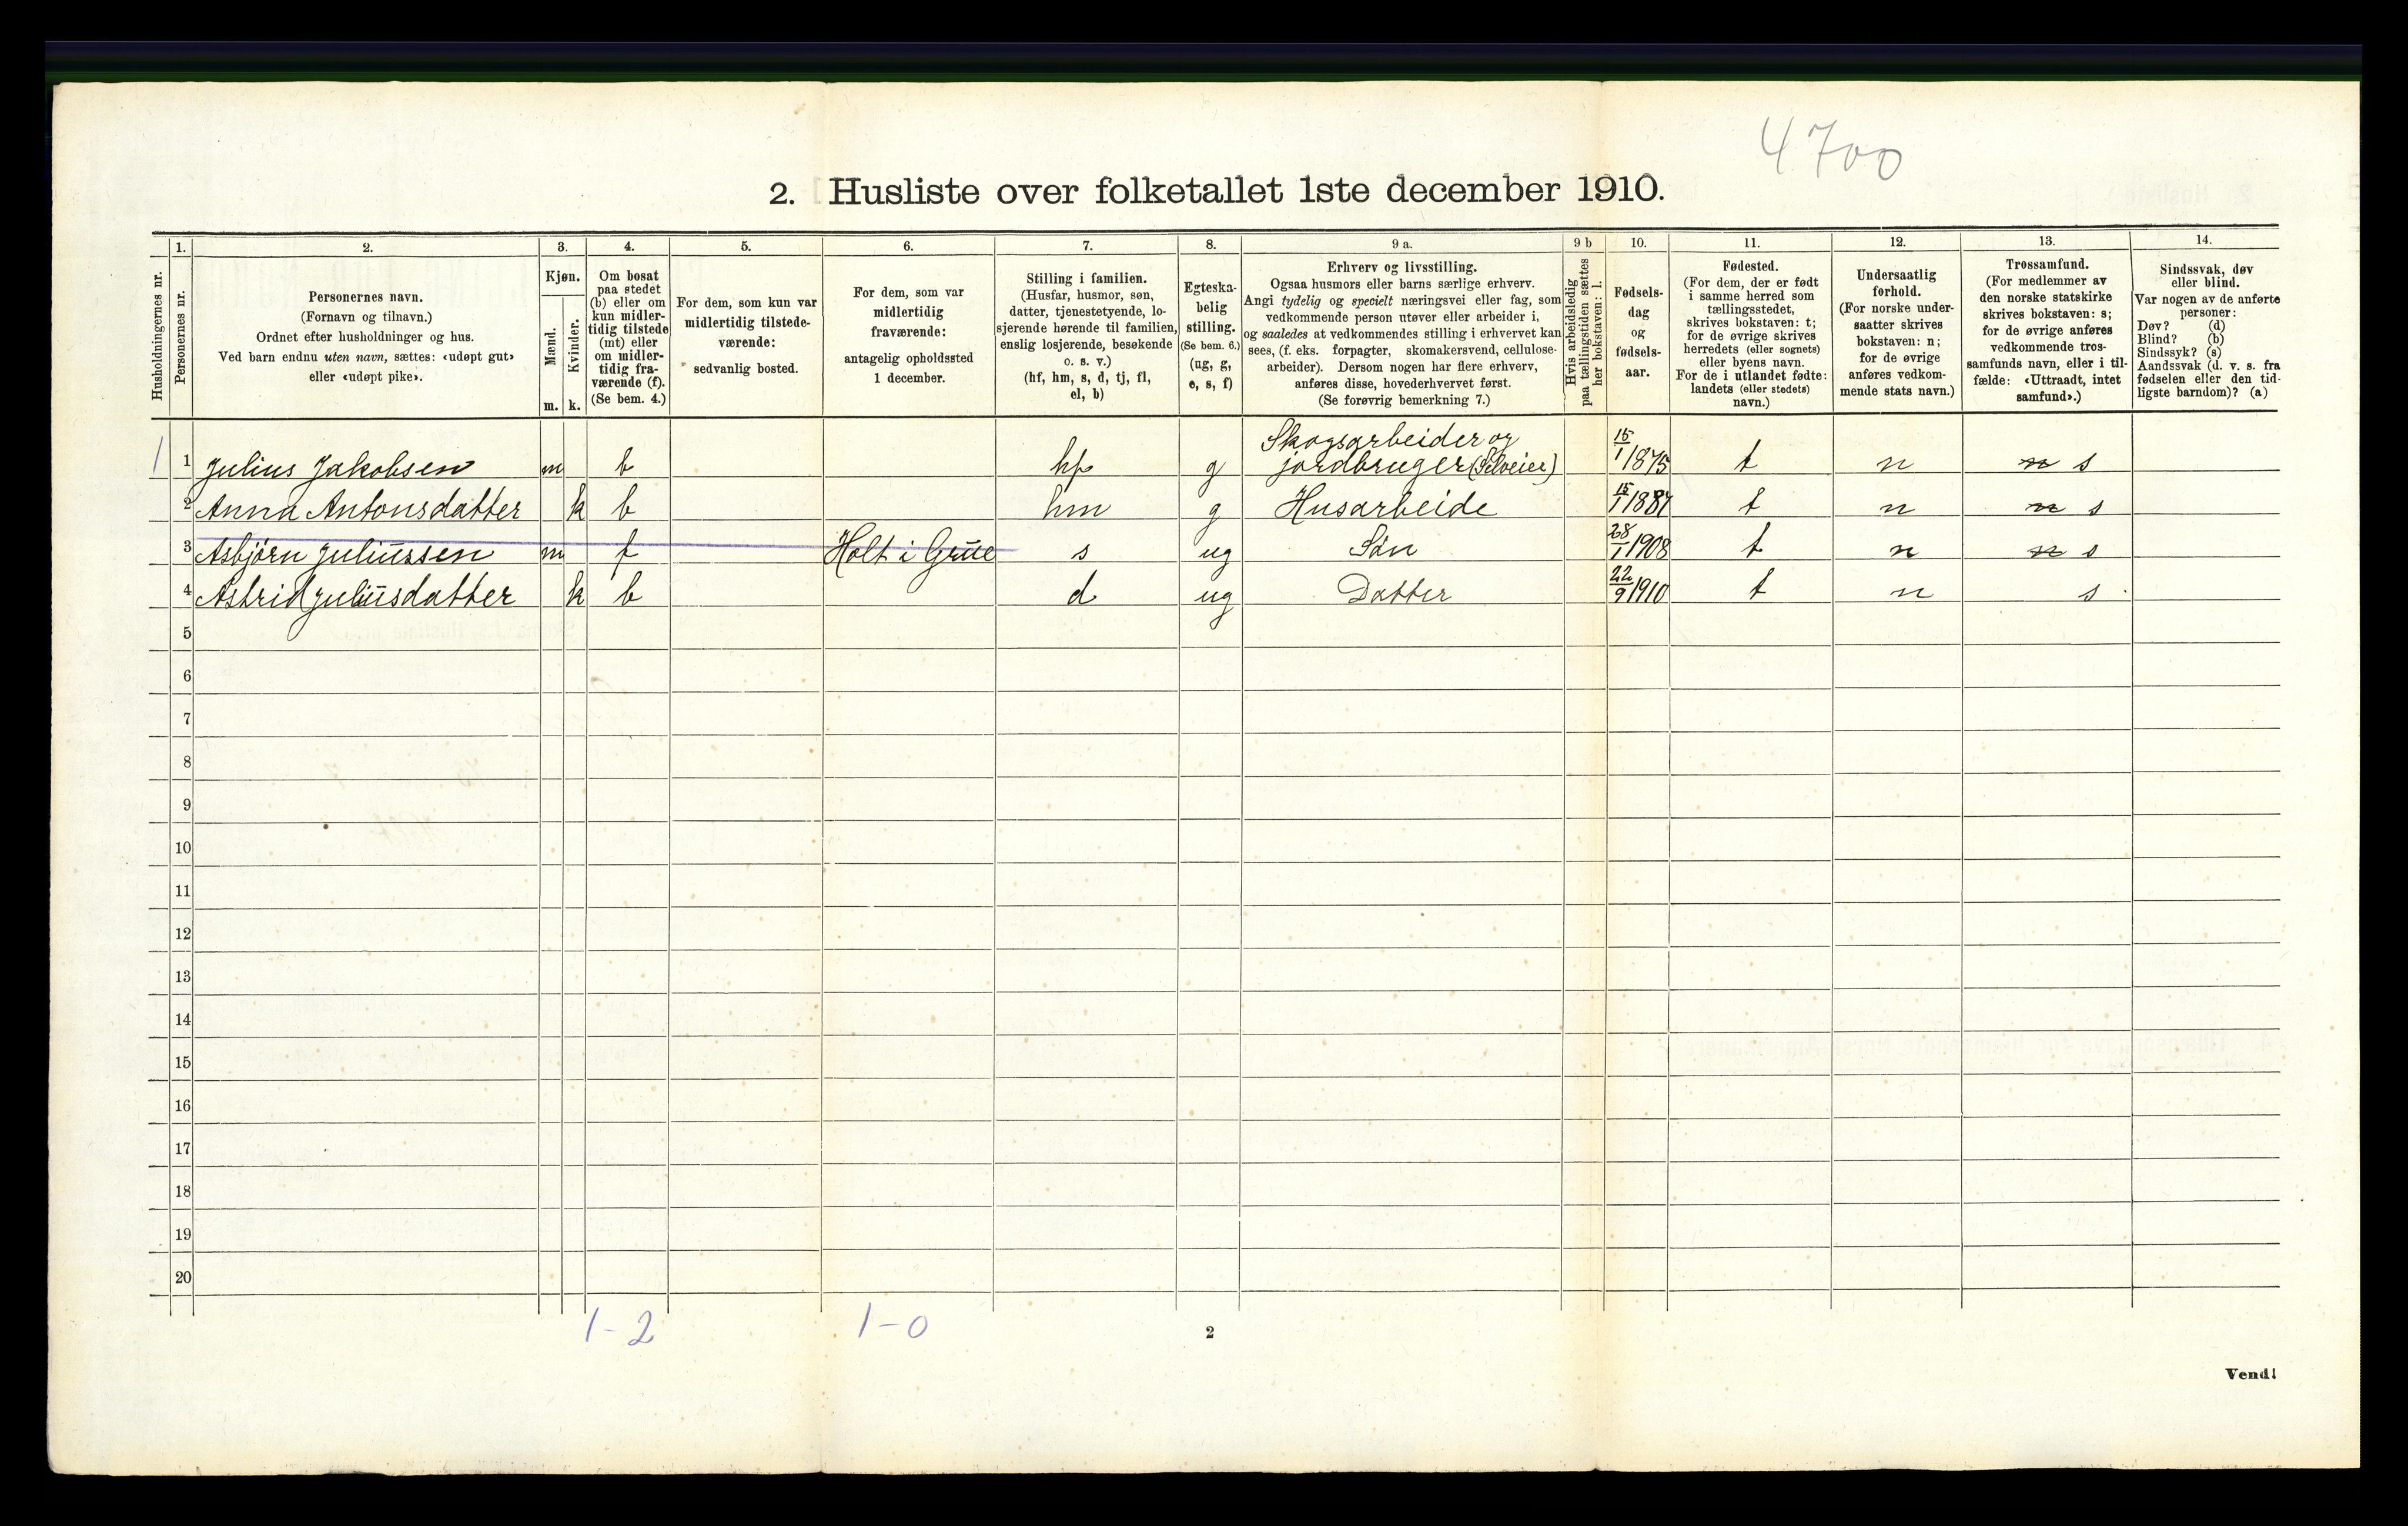 4700
2. Husliste over folketallet 1ste december 1910.
Husholdningernes nr.
1.
Personernes nr.
2.
Personernes navn.
(Fornavn og tilnavn.)
Ordnet efter husholdninger og hus.
Ved barn endnu uten navn, sættes: «udøpt gut»
eller «udøpt pike».
3.
Kjøn.
Mænd.
m.
Kvinder.
k.
4.
Om bosat
paa stedet
(b) eller om
kun midler-
tidig tilstede
(mt) eller
om midler-
tidig fra-
værende (f).
(Se bem. 4.)
5.
For dem, som kun var
midlertidig tilstede-
værende:
sedvanlig bosted.
6.
For dem, som var
midlertidig
fraværende:
antagelig opholdssted
1 december.
7.
Stilling i familien.
(Husfar, husmor, søn,
datter, tjenestetyende, lo-
sjerende hørende til familien,
enslig losjerende, besøkende
o. s. v.)
(hf, hm, s, d, tj, fl,
el, b)
8.
Egteska-
belig
stilling.
(Se bem. 6.)
(ug, g,
e, s, f)
9 a.
Erhverv og livsstilling.
Ogsaa husmors eller barns særlige erhverv.
Angi tydelig og specielt næringsvei eller fag, som
vedkommende person utøver eller arbeider i,
og saaledes at vedkommendes stilling i erhvervet kan
sees, (f. eks. forpagter, skomakersvend, cellulose-
arbeider). Dersom nogen har flere erhverv,
anføres disse, hovederhvervet først.
(Se forøvrig bemerkning 7.)
9 b
Hvis arbeidsledig
paa tællingstiden sættes
her bokstaven: l.
10.
Fødsels-
dag
og
fødsels-
aar.
11.
Fødested.
(For dem, der er født
i samme herred som
tællingsstedet,
skrives bokstaven: t;
for de øvrige skrives
herredets (eller sognets)
eller byens navn.
For de i utlandet fødte:
landets (eller stedets)
navn.)
12.
Undersaatlig
forhold.
(For norske under-
saatter skrives
bokstaven: n;
for de øvrige
anføres vedkom-
mende stats navn.)
13.
Trossamfund.
(For medlemmer av
den norske statskirke
skrives bokstaven: s;
for de øvrige anføres
vedkommende tros-
samfunds navn, eller i til-
fælde: «Uttraadt, intet
samfund».)
14.
Sindssvak, døv
eller blind.
Var nogen av de anførte
personer:
Døv? (d)
Blind? (b)
Sindssyk? (s)
Aandssvak (d. v. s. fra
fødselen eller den tid-
ligste barndom)? (a)
1 1 Julius Jakobsen m b hf g Skogsarbeider og jordbruger (Selveier) 15/1 1875 t n n s
2 Anna Antonsdatter k b hm g Husarbeide 15/1 1887 t n n s
3 Asbjørn Juliussen m f Holt i Grue s ug Søn 28/1 1908 t n n s
4 Astrid Juliusdatter k b d ug Datter 22/9 1910 t n s
5
6
7
8
9
10
11
12
13
14
15
16
17
18
19
20
1-2 1-0
2
Vend!